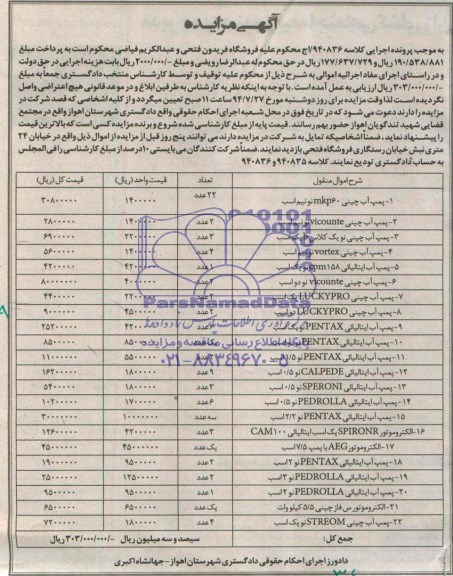 آگهی مزایده
به موجب پرونده اجرایی کلاسه ۹۴۰۸۳۶/اج محکوم علیه فروشگاه فریدون فتحی و عبدالکریم فیاضی محکوم است به پرداخت مبلغ
۱۹۰/۵۳۸/۸۸۱ ریال و ۱۷۷/۶۳۷/۷۲۹ ریال در حق محکوم له عبدالرضا رویضی و مبلغ -/۲۰۰۰/۰۰۰ ریال بابت هزینه اجرایی در حق دولت
و در راستای اجرای مفاد اجرائیه اموالی به شرح ذیل از محکوم علیه توقیف و توسط کارشناس منتخب دادگستری جمعا به مبلغ
-/۳۰۳/۰۰۰/۰۰۰ ریال ارزیابی به عمل آمده است. با توجه به اینکه نظریه کارشناس به طرفین ابلاغ و در موعد قانونی هیچ اعتراضی واصل
نگردیده است لذا وقت مزایده برای روز دوشنبه مورخ ۹۴/۷/۲۷ ساعت ۱۱ صبح تعیین میگردد و از کلیه اشخاصی که قصد شرکت در
مزایده را دارند دعوت می شود که در تاریخ فوق در محل شعبه اجرای احکام حقوقی واقع دادگستری شهرستان اهواز واقع در مجتمع
قضایی شهید تندگویان اهواز حضور بهم رسانند. قیمت پایه از مبلغ کارشناسی شده شروع و برنده مزایده کسی است که بالاترین قیمت
را پیشنهاد نماید. ضمنا اشخاصیکه تمایل به شرکت در مزایده دارند می توانند پنج روز قبل از مزایده از اموال ذیل واقع در خیابان ۲۴
متری نبش خیابان رستگاری فروشگاه فتحی بازدید نمایند. ضمنا شرکت کنندگان می بایستی ۱۰ درصد از مبلغ کارشناسی را فی المجلس
به حساب دادگستری تودیع نمایند. کلاسه ۹۴۰۸۳۵ و ۹۴۰۸۳۶
شرح اموال منقول تعداد قیمت واحد (ریال) قیمت کل (ریال)
۱-پمپ آب چینی mkp۶۰ نو نیم اسب ۲۲ عدد ۱۴۰۰۰۰۰ ۳۰۸۰۰۰۰۰
۲-پمپ آب چینی vicounte نو اسب ۲ عدد ۱۴۰۰ ۲۸۰۰۰۰۰
۳-پمپ آب چینی نو یک کلاس یک اسب ۳ عدد ۶۹۰۰
۴-پمپ آب چینی vortex اسب ۵۶۰۰
۵-پمپ آب ایتالیائی cpm۱۵۸ نو یک اسب ۱ عدد ۴۲۰۰۰۰۰
۶-پمپ آب چینی vicounte نو دو اسب ۲ عدد ۸۰۰۰۰۰۰
۷-پمپ آب چینی LUCKYPRO اسب ۴۴۰۰۰۰۰
۸-پمپ آب چینی LUCKYPRO اسب ۲ عدد ۴۵۰۰۰۰۰ ۹۰۰۰۰۰۰
۹-پمپ آب ایتالیائی PENTAX نو یک اسب ۴۲۰۰ ۲۵۲۰۰۰۰۰
۱۰-پمپ آب ایتالیائی PENTAX ۸۵۰۰۰۰۰
۱۱-پمپ آب ایتالیائی PENTAX نو ۱/۵ اسب ۲ عدد ۵۵۰۰۰۰۰ ۱۱۰۰۰۰۰۰
۱۲-پمپ آب ایتالیائی CALPEDE نو ۰/۵ اسب ۹ عدد ۱۸۰۰۰۰۰ ۱۶۲۰۰۰۰۰
۱۳-پمپ آب ایتالیائی SPERONI نو ۰/۵ اسب ۳ عدد ۱۸۰۰۰۰۰ ۵۴۰۰۰۰۰
۱۴-پمپ آب ایتالیائی PEDROLLA نو ۰/۵ اسب ۶ عدد ۱۷۰۰۰۰۰ ۱۰۲۰۰۰۰۰
۱۵-پمپ آب ایتالیائی PENTAX نو ۲/۲ اسب سه عدد ۱۰۰۰۰۰۰۰ ۳۰۰۰۰۰۰۰
۱۶-الکتروموتور SPIRONR یک اسب ایتالیائی CAM۱۰۰ ۳ عدد ۴۲۰۰۰۰۰ ۱۲۶۰۰۰۰۰
۱۷-الکتروموتور AEG با پمپ ۷/۵ اسب یک عدد ۴۵۰۰۰۰۰۰ ۴۵۰۰۰۰۰۰
۱۸-پمپ آب ایتالیائی PENTAX نو ۲ اسب ۲ عدد ۹۵۰۰۰۰۰ ۱۹۰۰۰۰۰۰
۱۹-پمپ آب ایتالیائی PEDROLLA نو ۳ اسب ۲ عدد ۱۲۵۰۰۰۰۰ ۲۵۰۰۰۰۰۰
۲۰-پمپ آب ایتالیائی PEDROLLA نو ۲ اسب ۱ عدد ۹۵۰۰۰۰۰ ۹۵۰۰۰۰۰
۲۱-الکتروموتور س فاز چینی ۵/۵ کیلو وات یک عدد ۶۵۰۰۰۰۰ ۶۵۰۰۰۰۰
۲۲-پمپ آب ایتالیائی STREOM نو یک اسب ۴ عدد ۱۸۰۰۰۰۰ ۷۲۰۰۰۰۰
جمع کل: سیصد و سه میلیون ریال -/۳۰۳/۰۰۰/۰۰۰ ریال
دادورز اجرای احکام حقوقی دادگستری شهرستان اهواز - جهانشاه اکبری
ParsNamadData
پایگاه اطلاع رسانی مناقصه و مزایده
۰۲۱-۸۸۳۴۹۶۷۰-۵